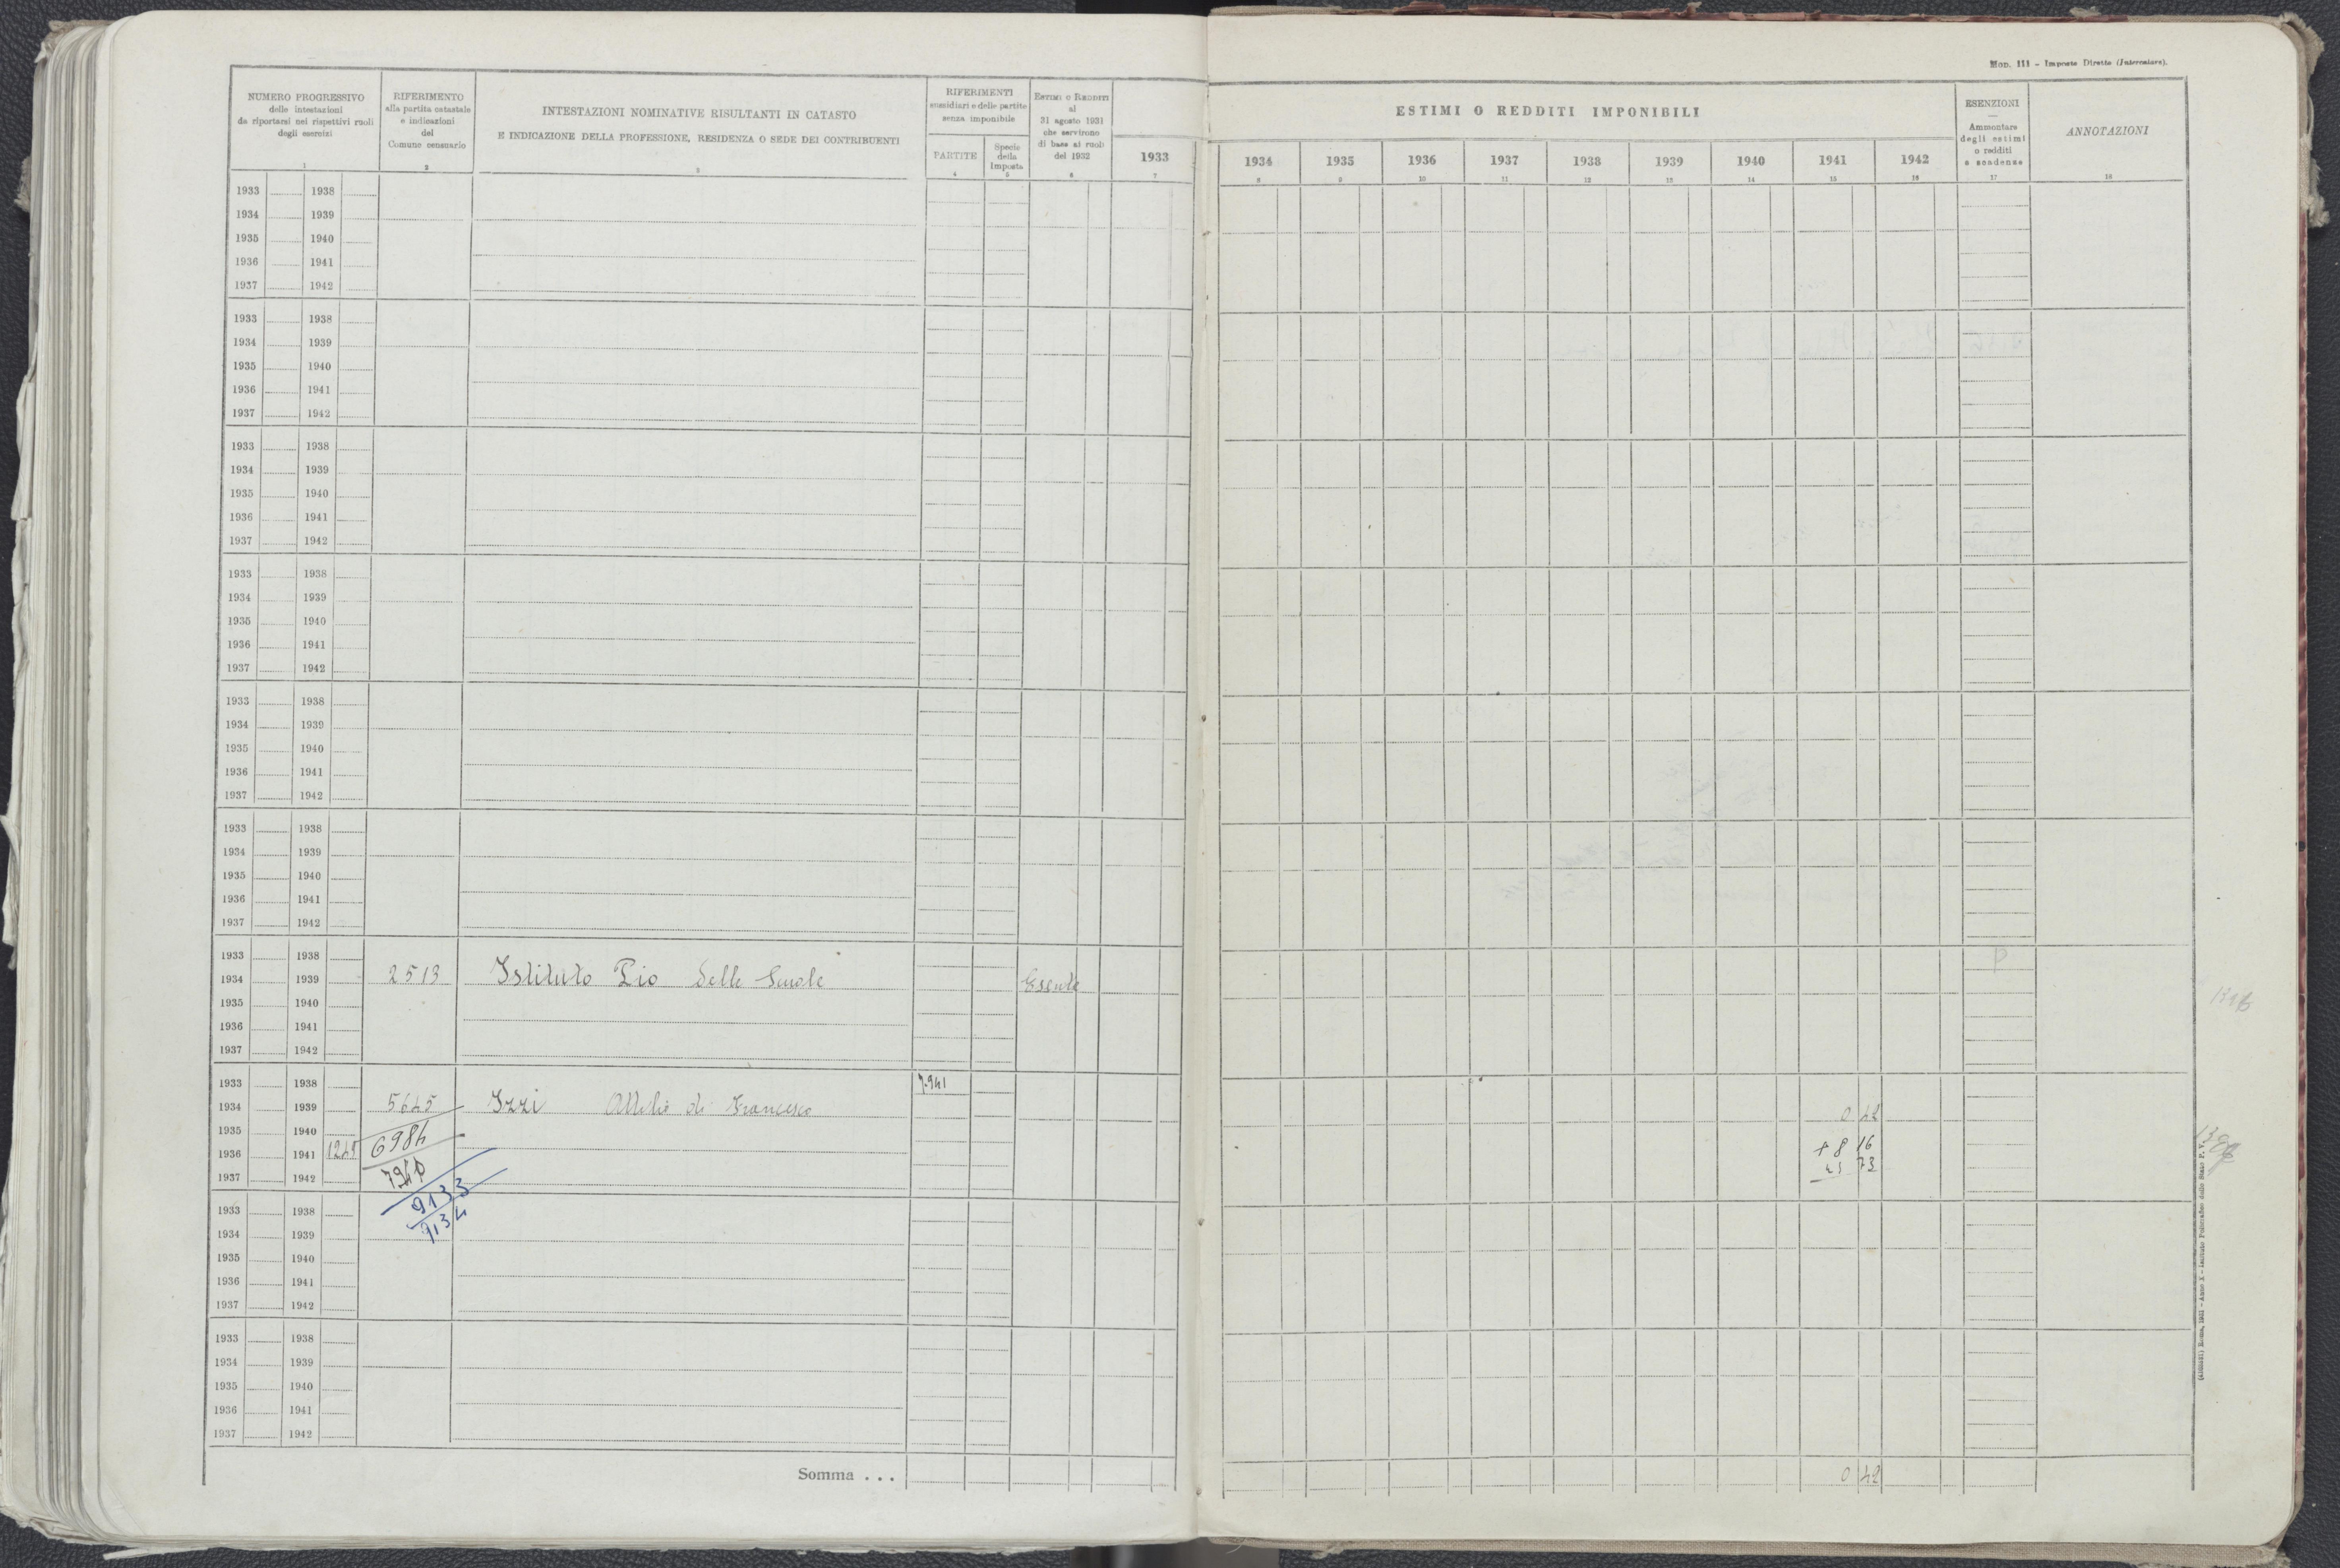 Mod. 111 - Imposte Dirette (Intercalare).
NUMERO PROGRESSIVO
delle intestazioni
da riportarsi nei rispettivi ruoli
degli esercizi
1
RIFERIMENTO
alla partita catastale
e indicazioni
del
Comune censuario
2
INTESTAZIONI NOMINATIVE RISULTANTI IN CATASTO
E INDICAZIONE DELLA PROFESSIONE, RESIDENZA O SEDE DEI CONTRIBUENTI
3
RIFERIMENTI
sussidiari e delle partite
senza imponibile
PARTITE
4
Specie
della
Imposta
5
Estimi o Redditi
al
31 agosto 1931
che servirono
di base ai ruoli
del 1932
6
1933
7
ESTIMI O REDDITI IMPONIBILI
1934 1935 1936 1937 1938 1939 1940 1941 1942
8 9 10 11 12 13 14 15 16
ESENZIONI
Ammontare
degli estimi
o redditi
e scadenze
17
ANNOTAZIONI
18
1933 1938
1934 1939
1935 1940
1936 1941
1937 1942
1933 1938
1934 1939
1935 1940
1936 1941
1937 1942
1933 1938
1934 1939
1935 1940
1936 1941
1937 1942
1933 1938
1934 1939
1935 1940
1936 1941
1937 1942
1933 1938
1934 1939
1935 1940
1936 1941
1937 1942
1933 1938
1934 1939
1935 1940
1936 1941
1937 1942
1933 1938
1934 1939 2513 Istituto Pio delle Scuole Esente
1935 1940
1936 1941
1937 1942
P
1933 1938 7.941
1934 1939 5645 Izzi Attilio di Francesco 0 42
1935 1940 6984
1936 1941 + 8 16
1937 1942 7940 73
9133
1933 1938 9134
1934 1939
1935 1940
1936 1941
1937 1942
1933 1938
1934 1939
1935 1940
1936 1941
1937 1942
Somma . . . 0 42
Roma, 1931 - Anno X - Istituto Poligrafico dello Stato P. V.